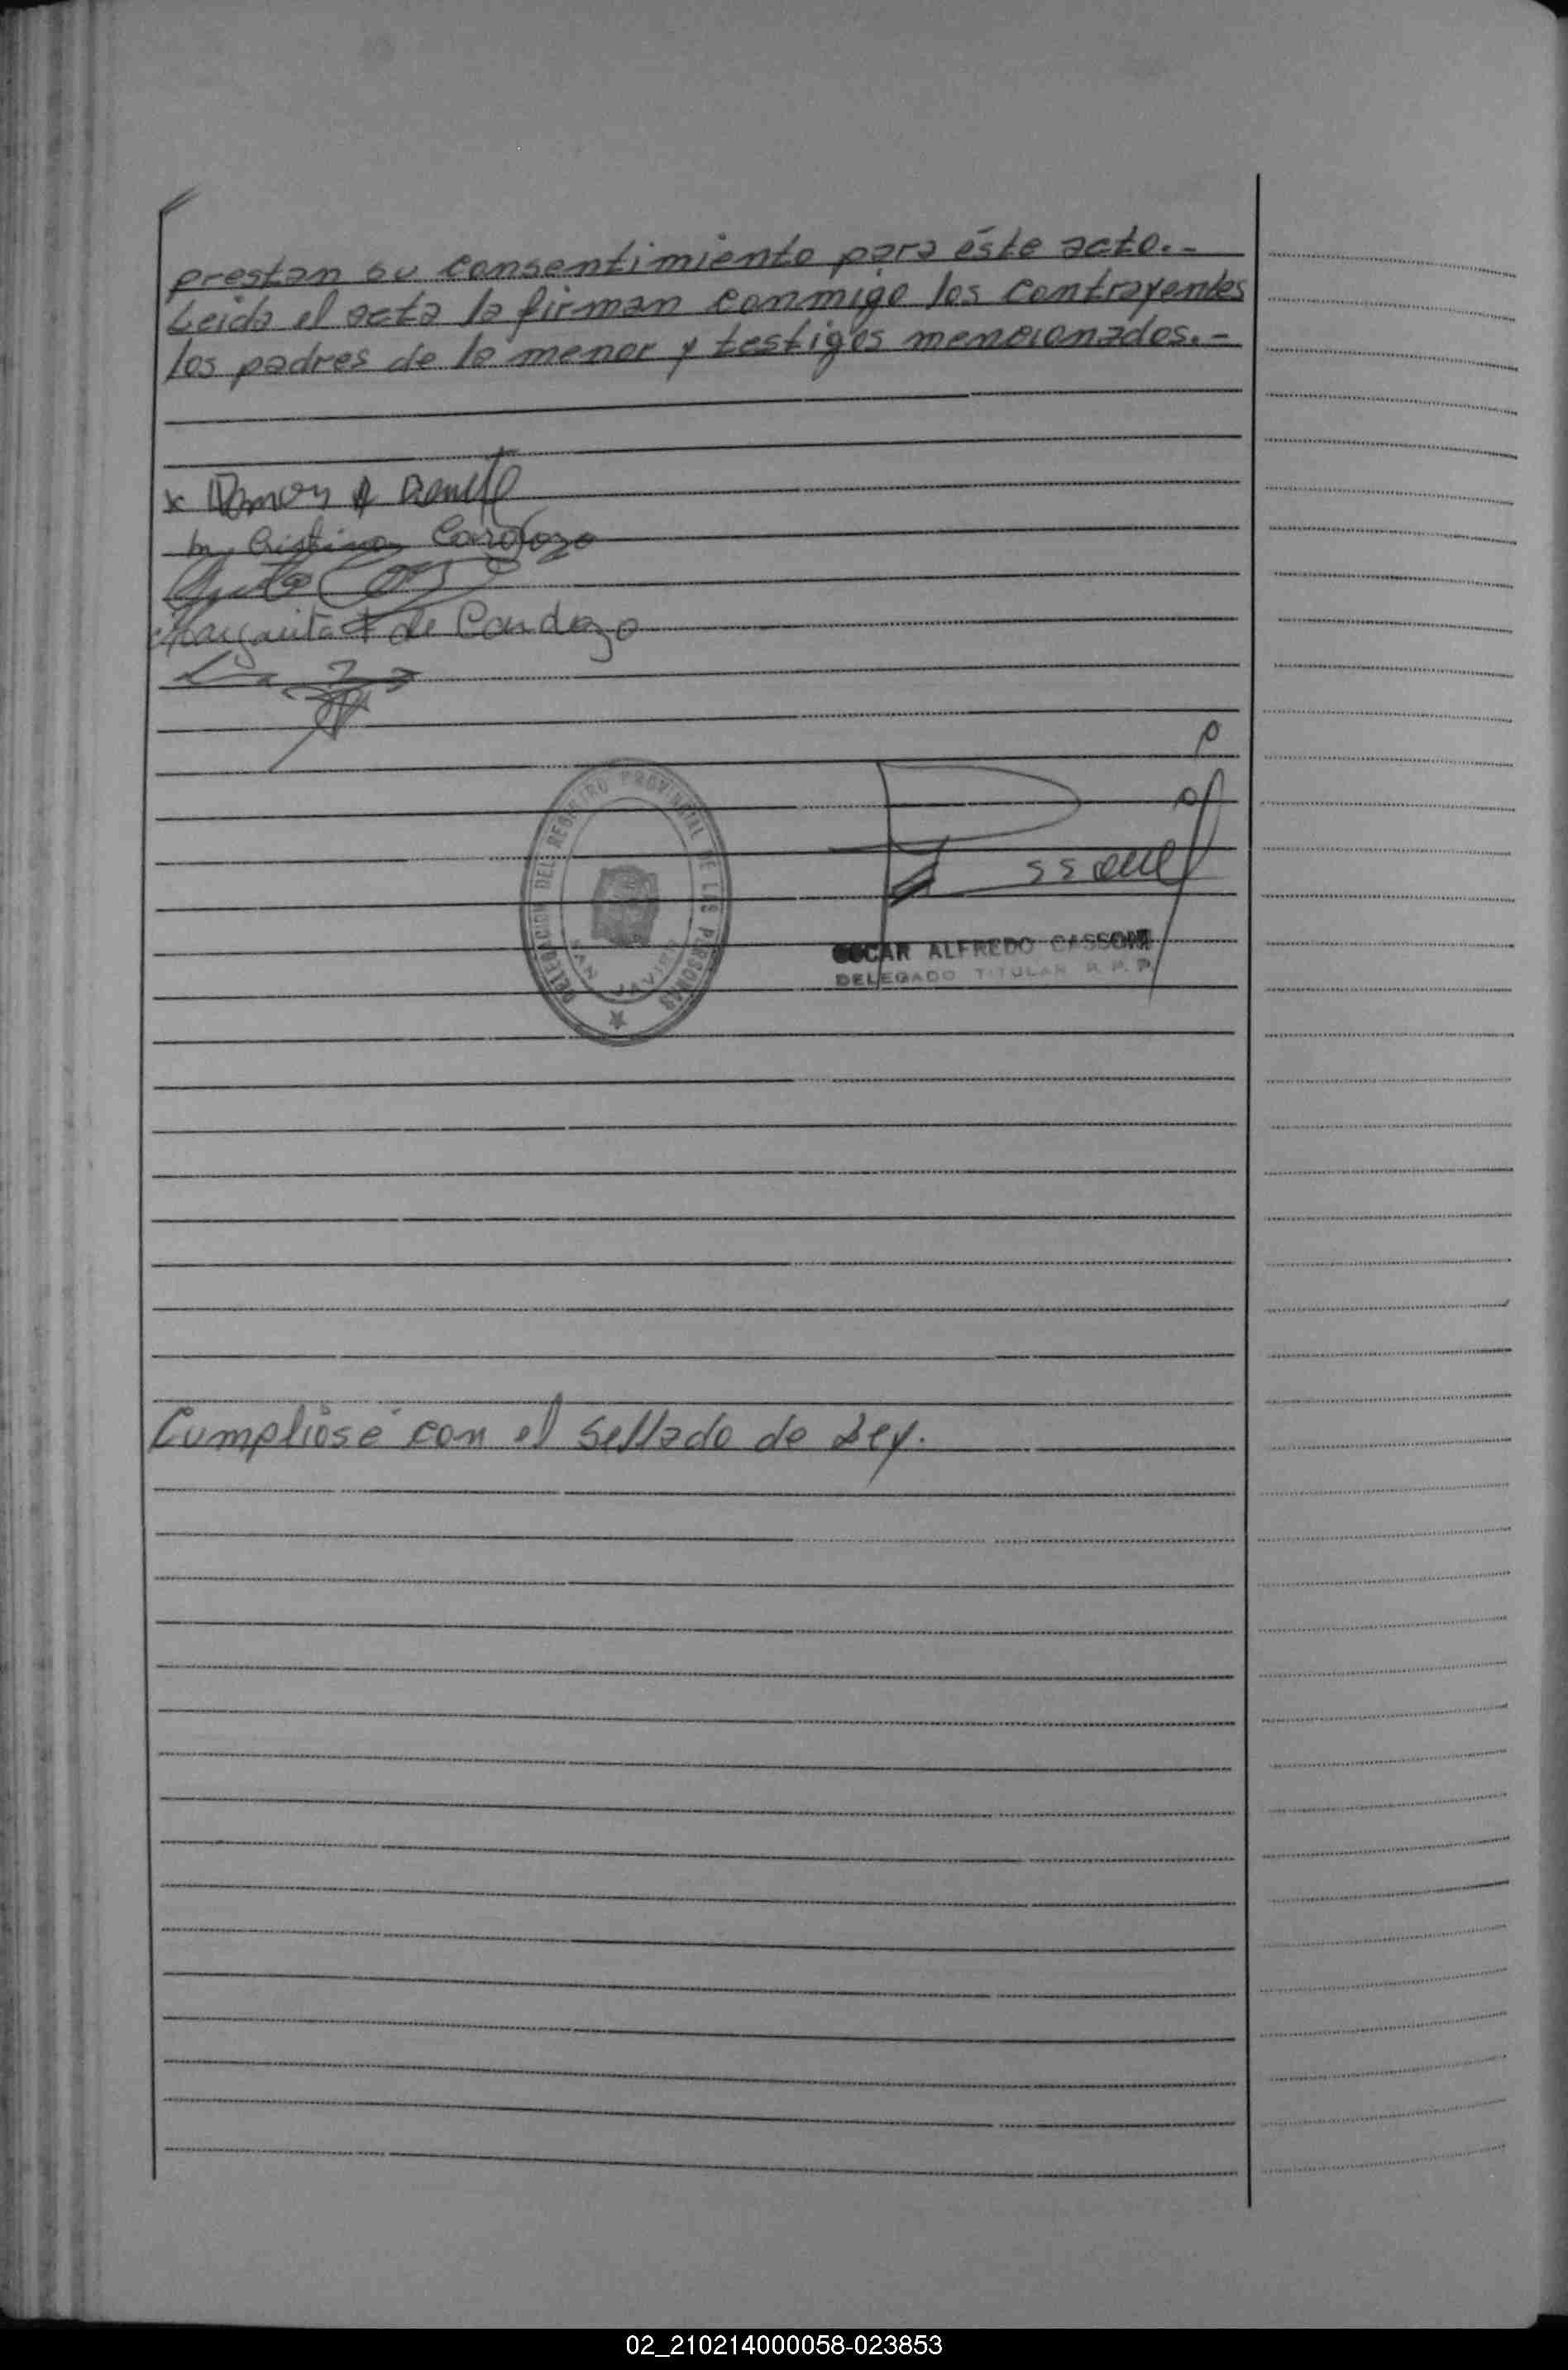 prestan su consentimiento para éste acto.-
Leida el acta la firman conmigo los contrayentes
los padres de la menor y testigos mencionados.-
x Ramon A
M Cristina Cardozo
Margarita F de Cardozo
DELEGACION DEL REGISTRO PROVINCIAL DE LAS PERSONAS
SAN JAVIER
OSCAR ALFREDO CASSONI
DELEGADO TITULAR R. P. P.
Cumpliosé con el Sellado de Ley.
02_210214000058-023853